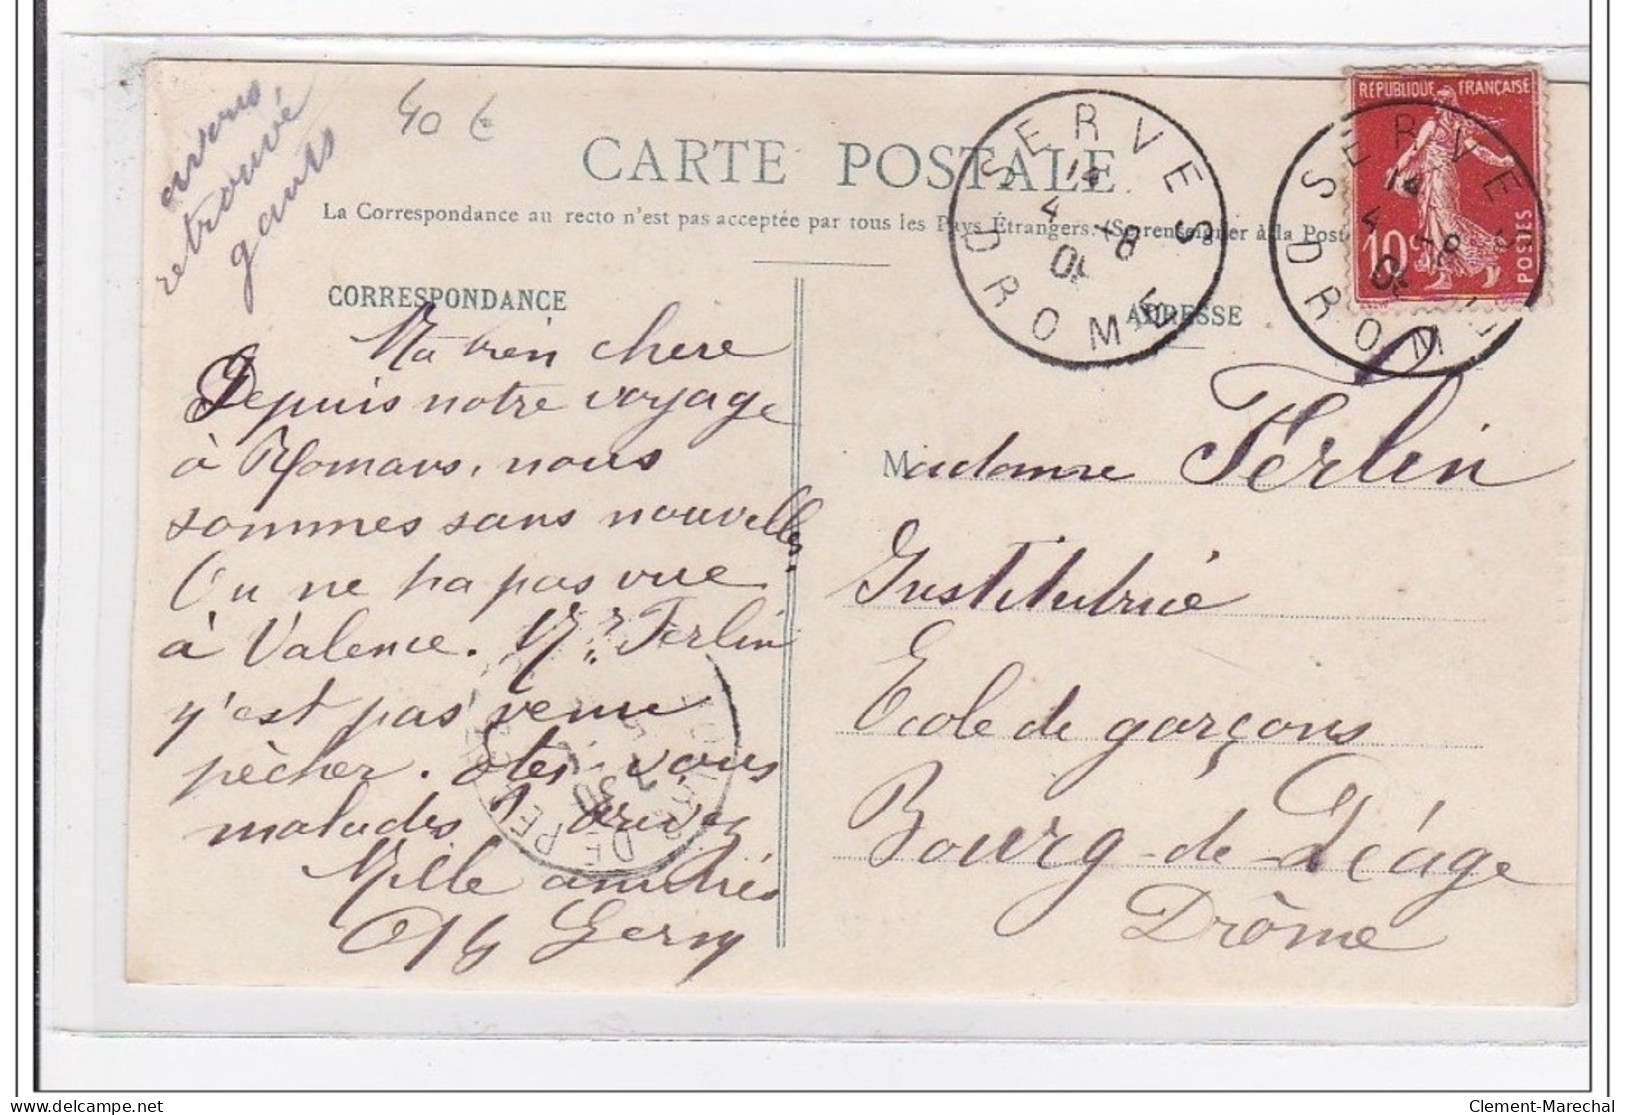 avons
retrouvé
gants
40 €
CARTE POSTALE
La Correspondance au recto n'est pas acceptée par tous les Pays Étrangers. (Se renseigner à la Poste
CORRESPONDANCE
ADRESSE
SERVES
14
4 -8
DROME
SERVES
14
4 -8
DROME
RÉPUBLIQUE FRANÇAISE
10c
POSTES
Ma bien chere
Depuis notre voyage
à Romans, nous
sommes sans nouvelles.
On ne t'a pas vue
à Valence. Mr. Ferlin
n'est pas venu
pêcher. êtes-vous
malades? Ecrivez
Mille amitiés
Gerny
Madame Ferlin
Institutrice
Ecole de garçons
Bourg-de-Péage
Drôme
DE PE
Clement-Marechal